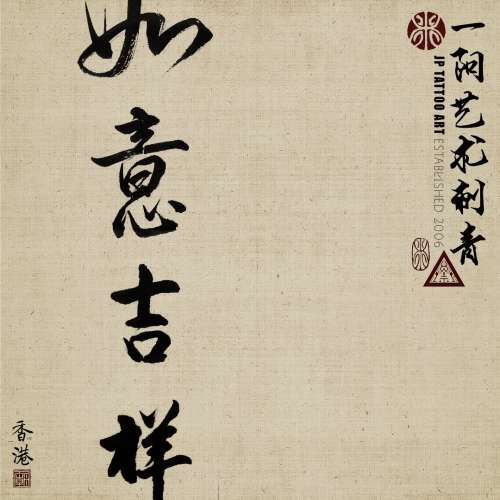 一阳艺术刺青
JP TATTOO ART ESTABLISHED 2006
如意吉祥
香港